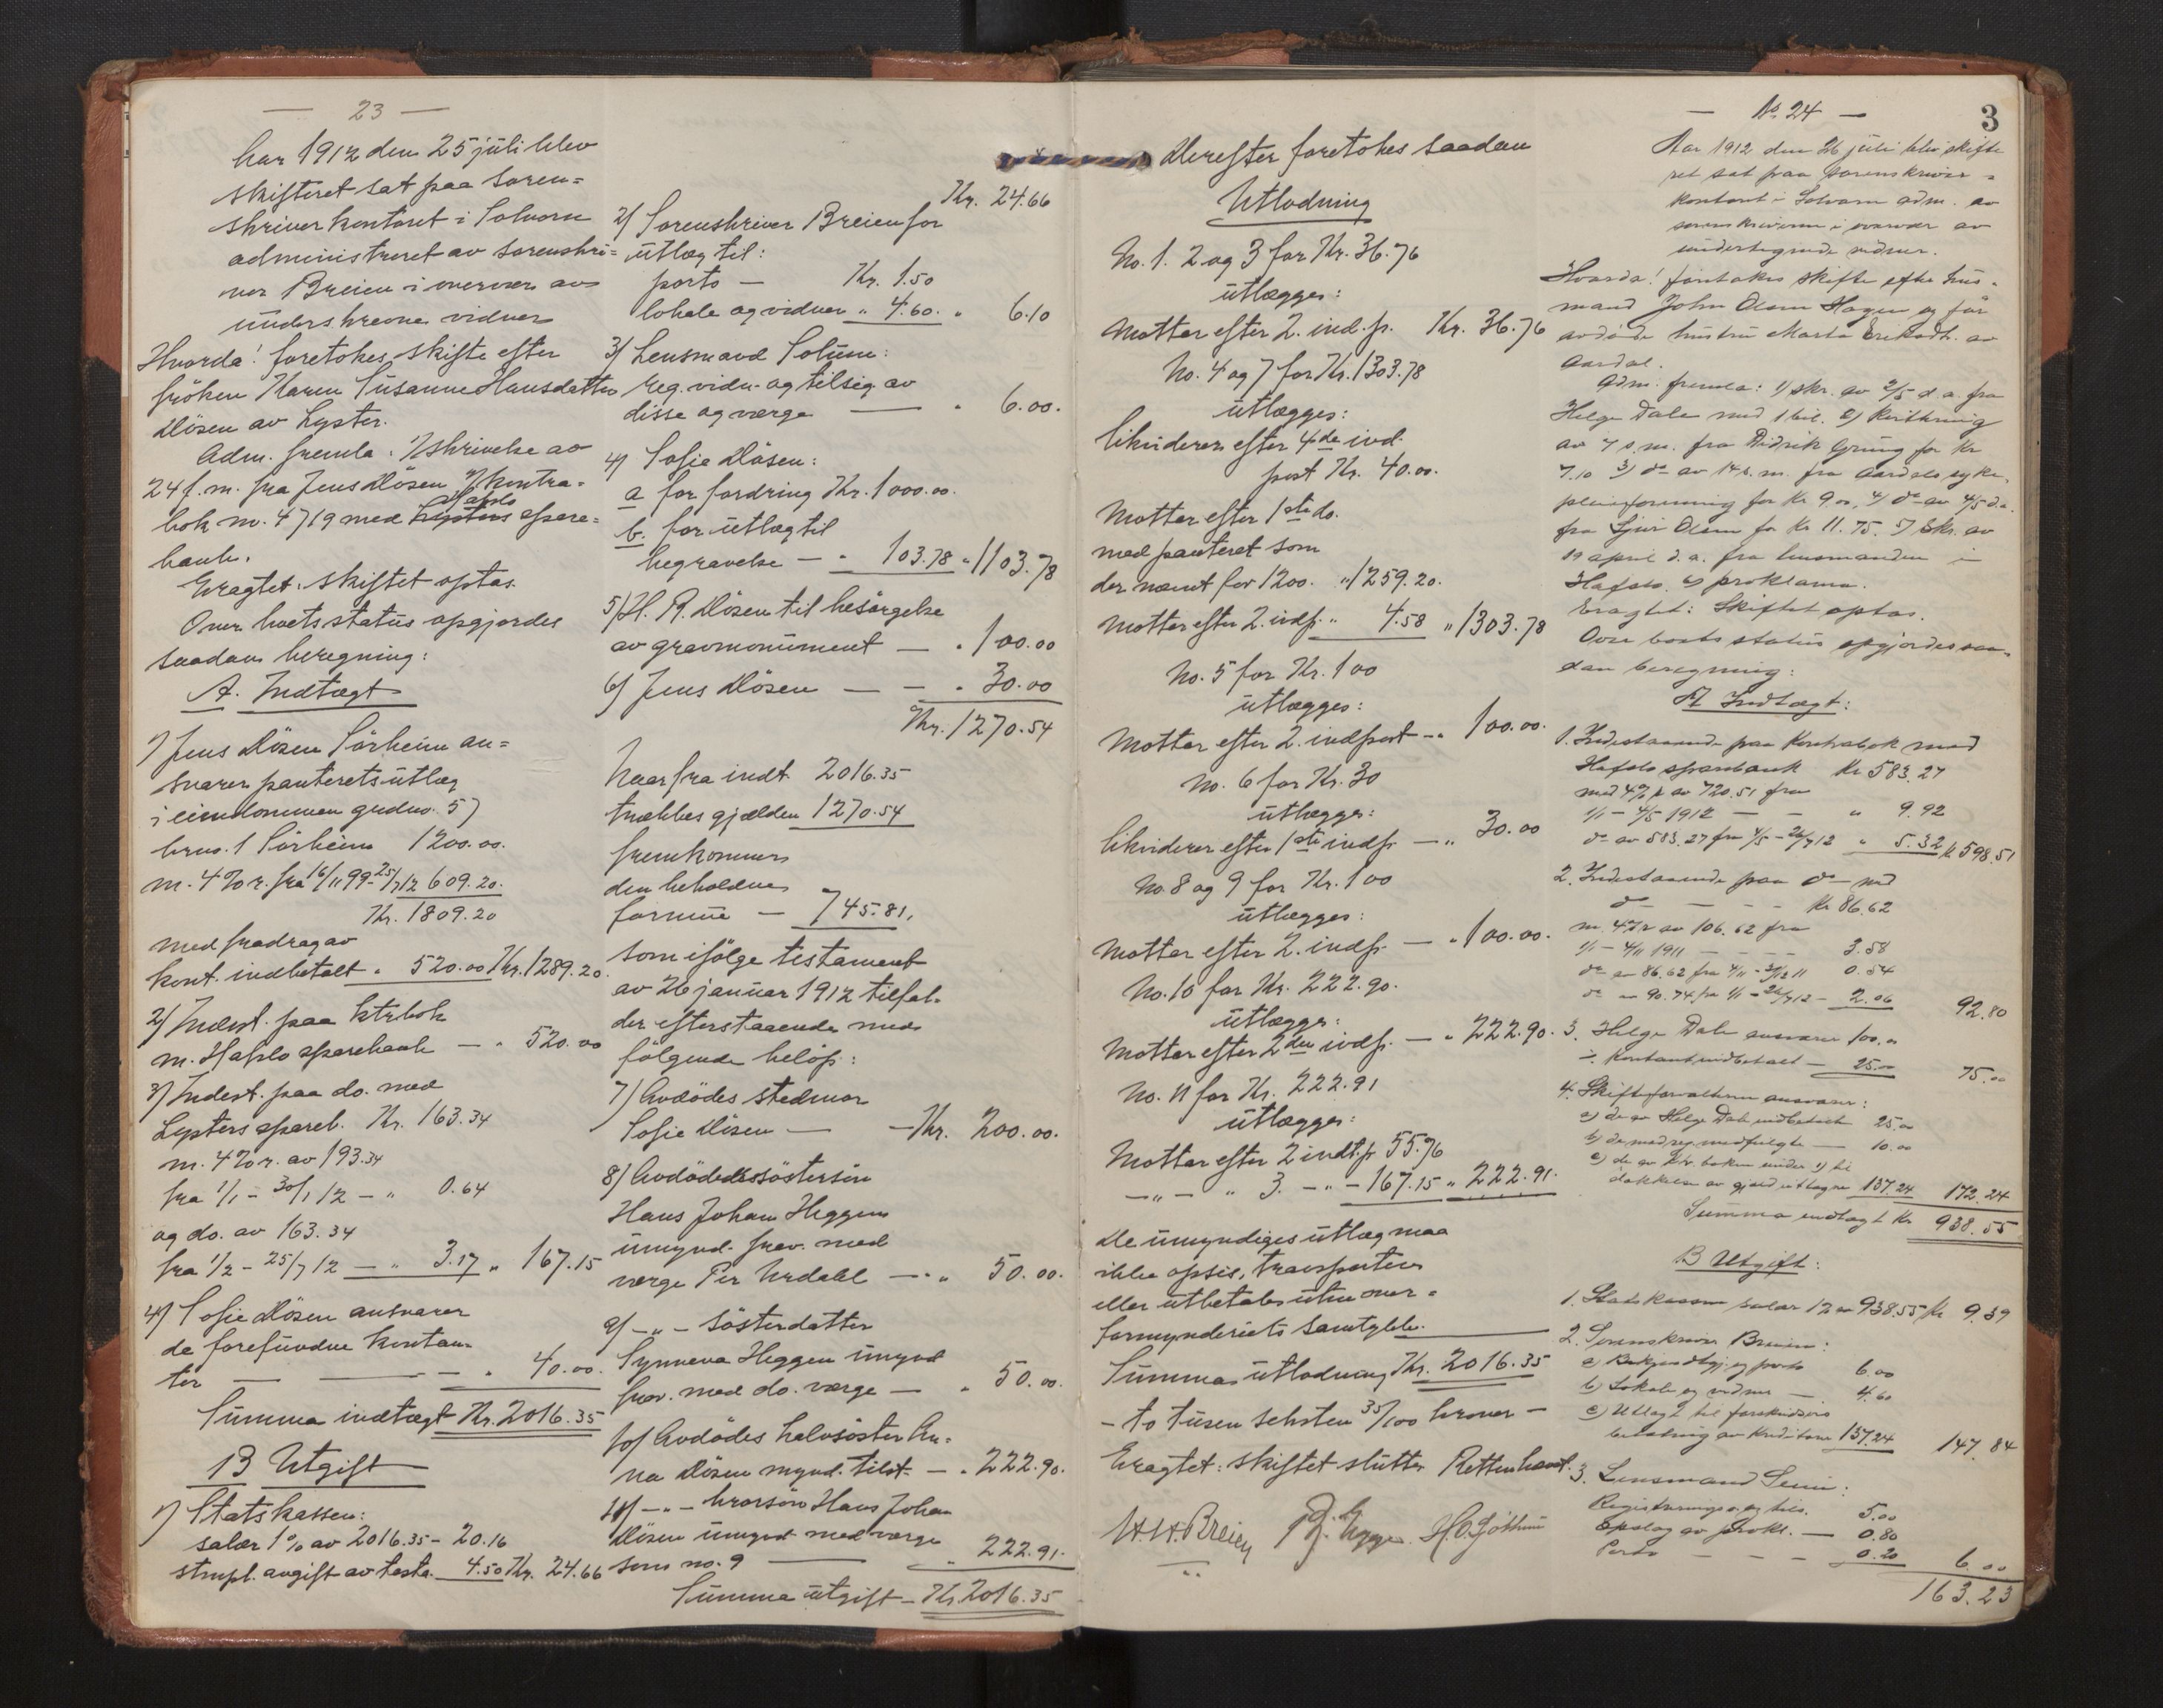 — 23 —
Aar 1912 den 25 juli blev
skifteret sat paa soren=
skriverkontoret i Solvorn
administreret av sorenskri=
ver Breien i overvær av
underskrevne vidner
Hvorda! foretokes skifte efter
fröken Karen Susanne Hansdatter
Døsen av Lyster.
Adm. fremla: 1/ skrivelse av
24 f. m. fra Jens Døsen 2/ kontra=
bok no. 4719 med Hafslo spare=
bank.
Eragtet: skiftet optas.
Over boets status opgjordes
saadan beregning:
A. Indtægt
1) Jens Døsen Sörheim an=
svarer panteretsutlæg
i eiendommen grdno. 57
brno. 1 Sörheim 1200.00.
m. 4 % r. fra 16/11 99 - 25/7 12 609.20.
Kr. 1809.20
med fradrag av
kont. indbetalt " 520.00 Kr. 1289.20.
2) Indest. paa ktrbok
m. Hafslo sparebank — " 520.00
3) Indest. paa do. med
Lysters spareb. Kr. 163.34
m. 4 % r. av 193.34
fra 1/1 - 30/1 12 — " 0.64
og do. av 163.34
fra 1/2 - 25/7 12 — " 3.17 " 167.15
4) Sofie Døsen ansvarer
de forefundne kontan=
ter — — — " 40.00.
Summa indtægt Kr. 2016.35
B Utgift
1) Statskassen:
salær 1 % av 2016.35 - 20.16
stmpl. avgift av testa. 4.50 Kr. 24.66
Kr. 24.66
2) Sorenskriver Breien for
utlæg til:
porto — Kr. 1.50
lokale og vidner " 4.60. " 6.10
3) Lensmand Solum:
reg. vidn. og tilsig. av
disse og værge — " 6.00.
4) Sofie Døsen:
a for fordring Kr. 1000.00.
b. for utlæg til
begravelse — " 103.78 " 1103.78
5) H. R. Døsen til besörgelse
av gravmonument — " 100.00
6) Jens Døsen — — " 30.00
Kr. 1270.54
Naar fra indt. 2016.35
trækkes gjælden 1270.54
fremkommer
den beholdne
formue — 745.81,
som ifölge testament
av 26 januar 1912 tilfal=
der efterstaaende med
fölgende belöp:
7) Avdödes stedmor
Sofie Døsen — — Kr. 200.00.
8) Avdödes söstersön
Hans Johan Heggen
umynd. frav. med
værge Per Urdahl — " 50.00.
9) — " — Sösterdatter
Synneva Heggen umynd
frav. med do. værge — " 50.00.
10) Avdödes halvsöster An=
na Døsen mynd. tilst. — " 222.90.
11) — " — brorsön Hans Johan
Døsen umynd med værge
som no. 9 — " 222.91.
Summa utgift — Kr. 2016.35
Derefter foretokes saadan
Utlodning
No. 1. 2 og 3 for Kr. 36.76
utlægges:
Mottar efter 2. ind. p. Kr. 36.76
No. 4 og 7 for Kr. 1303.78
utlægges:
likviderer efter 4de ind.
post Kr. 40.00.
Mottar efter 1ste do.
med panteret som
der nævnt for 1200. " 1259.20.
Mottar efter 2. indp. " 4.58 " 1303.78
No. 5 for Kr. 100
utlægges:
Mottar efter 2. indpost — " 100.00.
No. 6 for Kr. 30
utlægges:
likviderer efter 1ste indp. — " 30.00
No. 8 og 9 for Kr. 100
utlægges:
Mottar efter 2. indp. — " 100.00.
No. 10 for Kr. 222.90.
utlægges:
Mottar efter 2den indp. — " 222.90.
No. 11 for Kr. 222.91
utlægges:
Mottar efter 2 indt. p. 55.76
— " — " 3. — " — 167.15 " 222.91.
De umyndiges utlæg maa
ikke opsis, transporteres
eller utbetales uten over=
formynderiets samtykke.
Summa utlodning Kr. 2016.35
- to tusen seksten 35/100 kroner —
Eragtet: skiftet slutter Retten hævet.
H. H. Breien
— No. 24 —
3
Aar 1912 den 26 juli blev skifte
ret sat paa sorenskriver=
kontoret i Solvorn adm. av
sorenskriveren i overvær av
undertegnede vidner.
Hvorda! foretokes skifte efter hus=
mand John Olsen Hagen og för
avdöde hustru Marta Eriksdtr. av
Aardal.
Adm. fremla: 1) skr. av 2/5 d. a. fra
Helge Dale med 1 bil. 2) Kvittering
av 7 s. m. fra Didrik Grung for Kr
7.10 3) do av 14 s. m. fra Aardals syke=
pleieforening for Kr 9.00, 4) do av 4/5 d. a.
fra Sjur Olsen for Kr 11.75. 5) Skr. av
19 april d. a. fra lensmanden i
Hafslo. 6) proklama.
Eragtet: Skiftet optas.
Over boets status opgjordes saa=
dan beregning:
A Indtægt:
1. Indestaaende paa Kontrabok med
Hafslo sparebank Kr 583.27
med 4% p. av 720.51 fra
1/1 - 4/5 1912 — — " 9.92
do av 583.27 fra 4/5 - 26/7 12 " 5.32 Kr 598.51
2. Indestaaende paa do med
do — — — Kr 86.62
m. 4% r av 106.62 fra
1/1 - 4/11 1911 — — — 3.58
do av 86.62 fra 4/11 - 31/12 11 0.54
do av 90.74 fra 1/1 - 26/7 12 — 2.06 92.80
3. Helge Dale ansvarer 100.00
÷ Kontant indbetalt — 25.00 75.00
4. Skifteforvalteren ansvarer:
a) de av Helge Dale indbetalte 25.00
b) de med reg. medfulgte — 10.00
c) de av ktr. boken under 1) til
dækkelse av gjæld uttagne 137.24 172.24
Summa indtægt Kr 938.55
B Utgift:
1. Statskassen salær 1% av 938.55 Kr 9.39
2. Sorenskriver Breien:
a) Bekjendtgj. og porto 6.00
b) Lokale og vidner — 4.60
c) Utlagt til forskudsvis
betaling av Kreditorer 137.24 147.84
3. Lensmand Semm:
Registrering s. og tils. 5.00
Opslag av prokl. — 0.80
Porto — — — 0.20 6.00
163.23